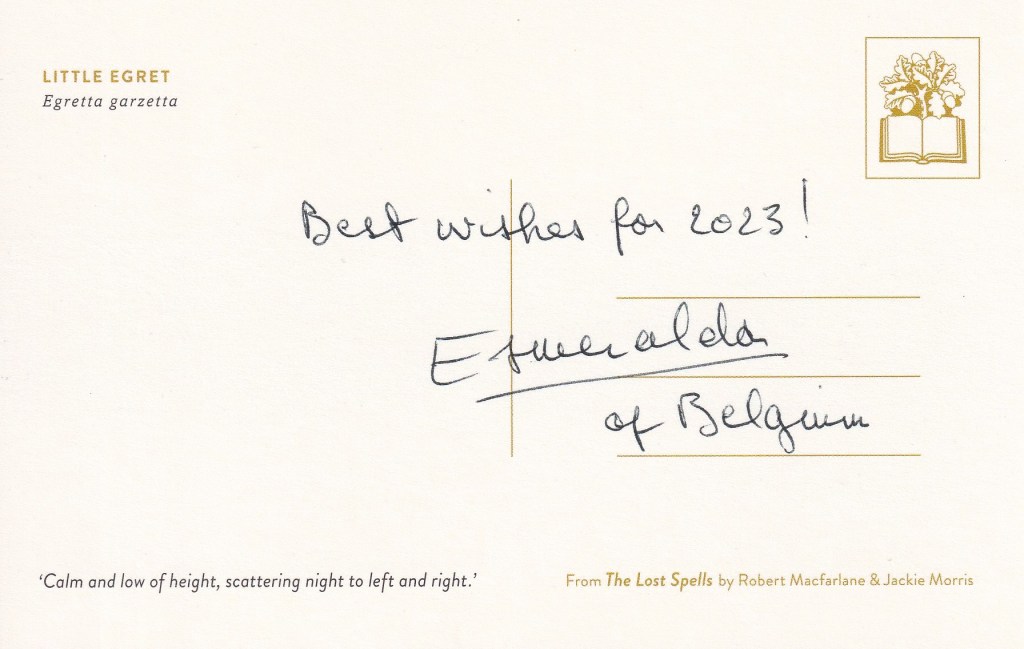 LITTLE EGRET
Egretta garzetta
Best wishes for 2023!
Esmeralda
of Belgium
‘Calm and low of height, scattering night to left and right.’
From The Lost Spells by Robert Macfarlane & Jackie Morris